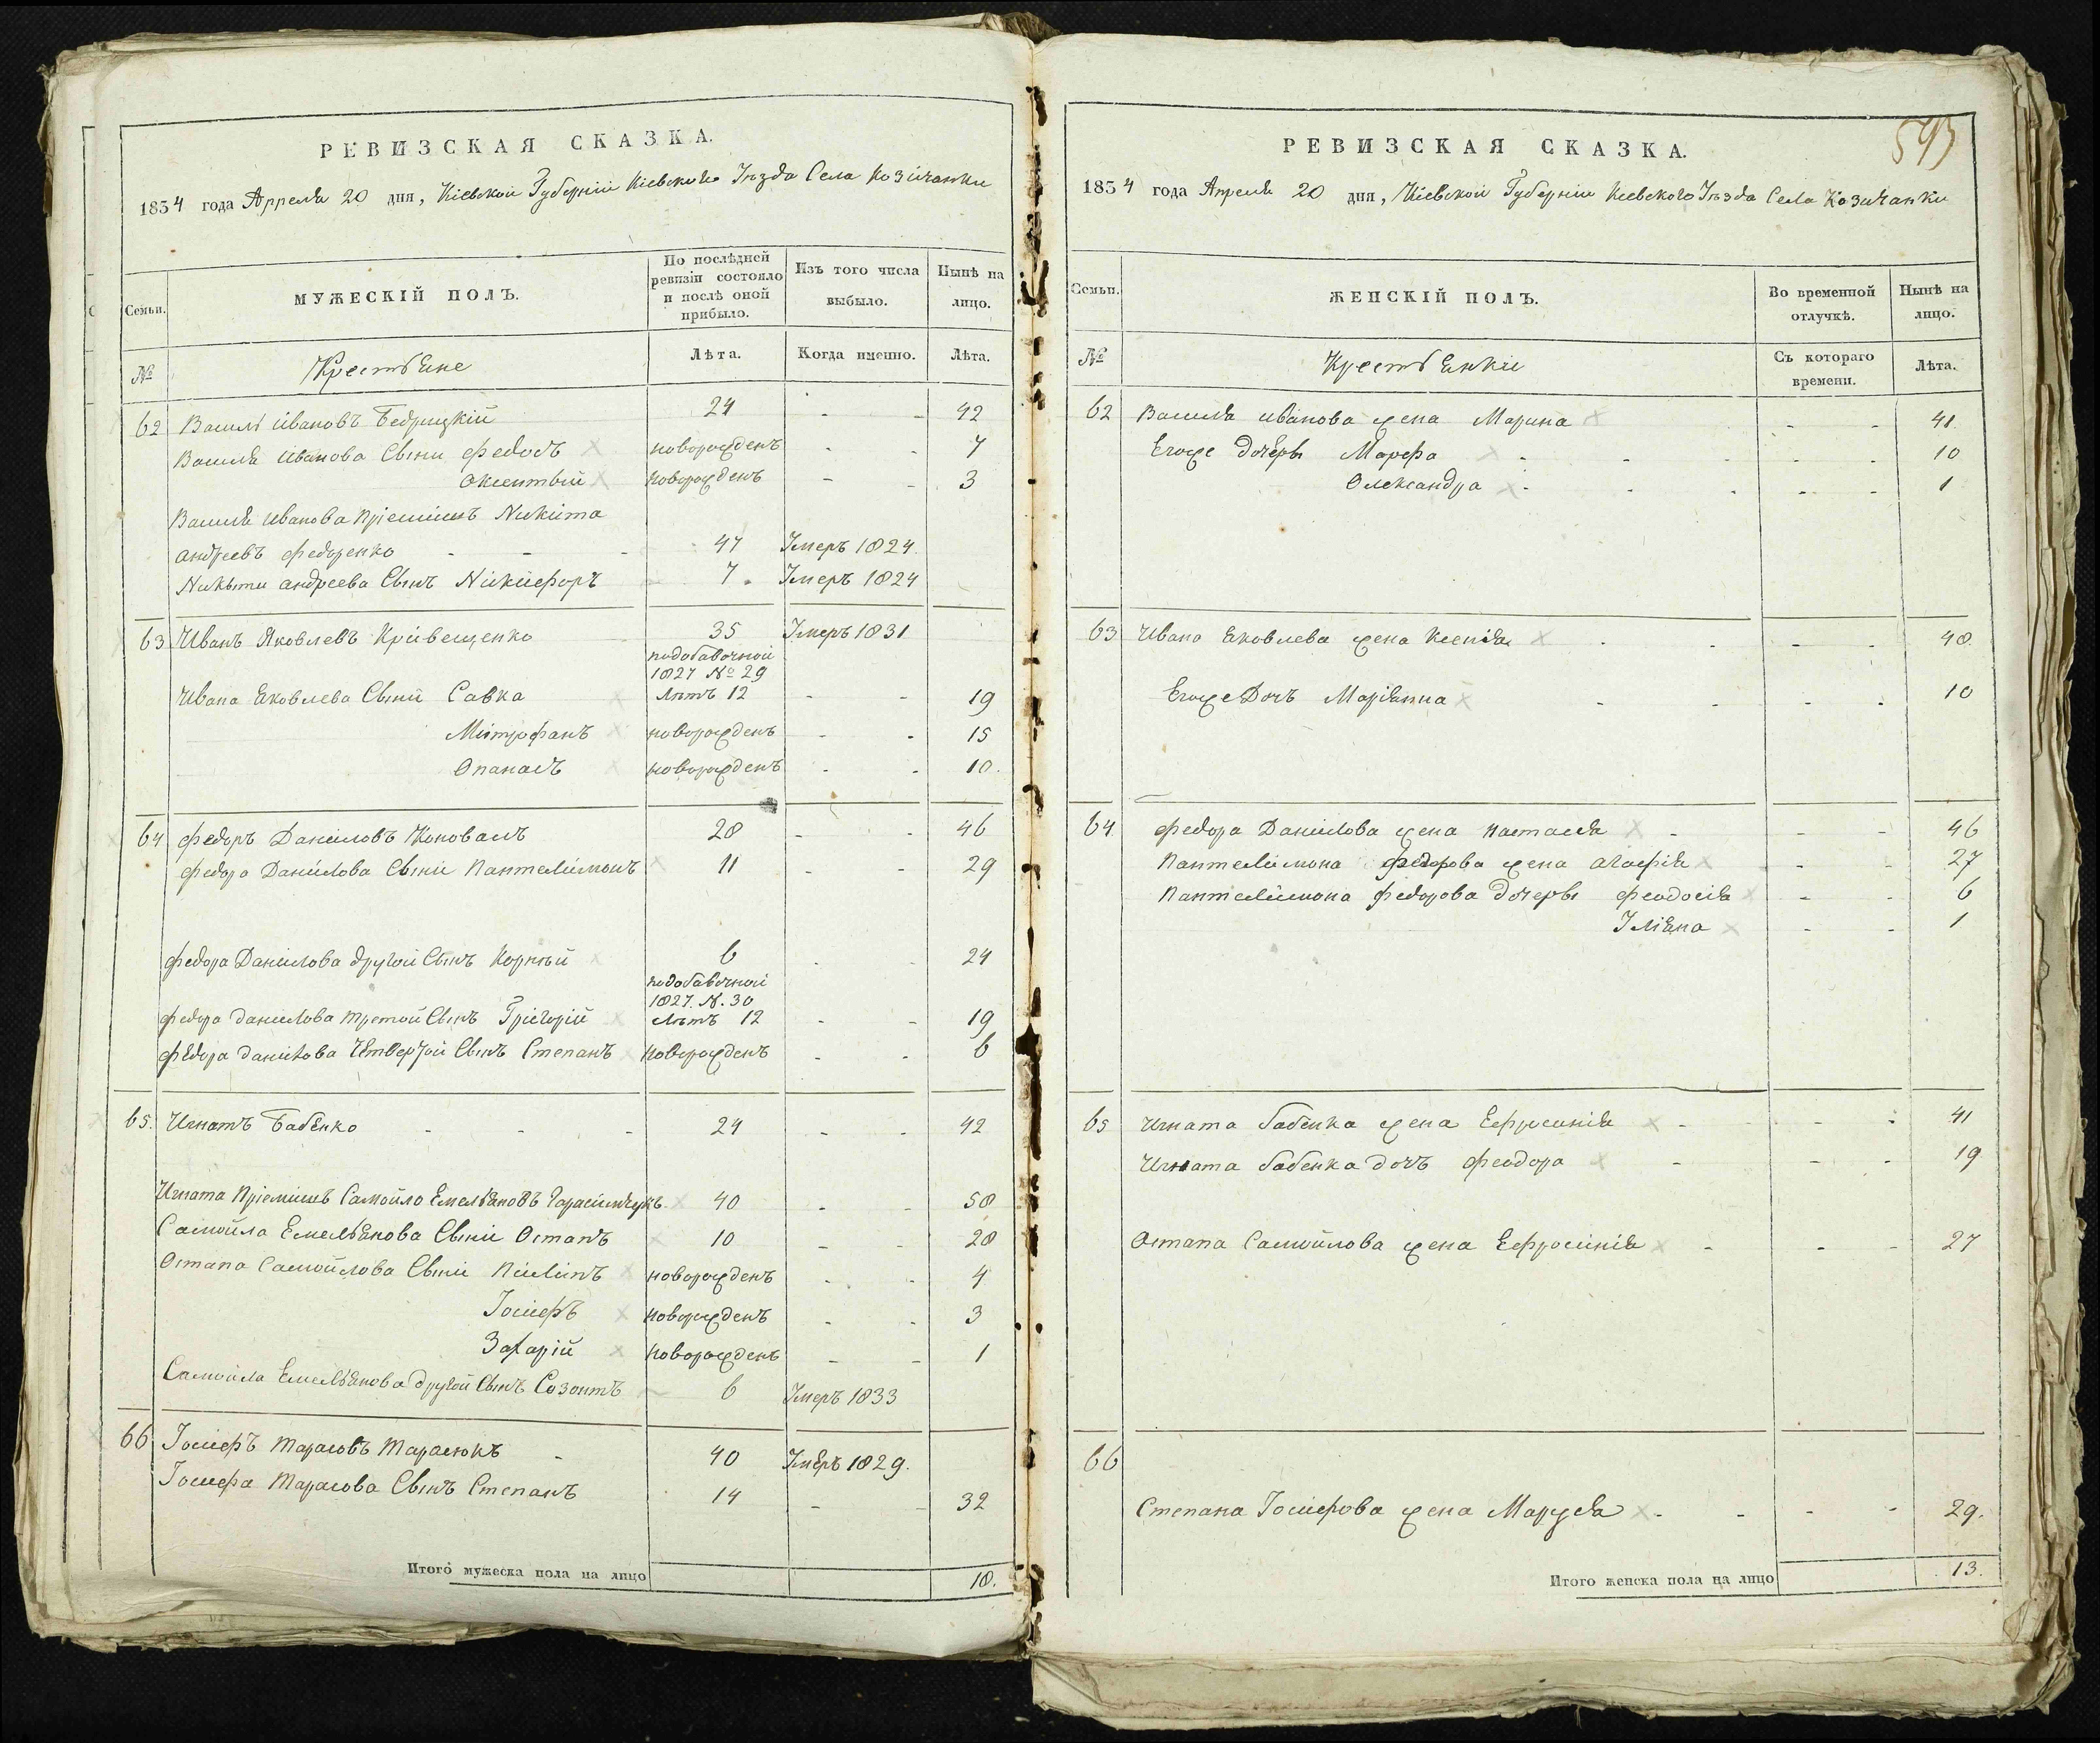 РЕВИЗСКАЯ СКАЗКА.
1834 года Арреля 20 дня, Кіевской Губерніи Кіевского Уѣзда Села Козичанки
Семьи.
МУЖЕСКІЙ ПОЛЪ.
По послѣдней ревизіи состояло и послѣ оной прибыло.
Изъ того числа выбыло.
Нынѣ на лицо.
№
Крестьяне
Лѣта.
Когда именно.
Лѣта.
62 Василь Ивановъ Бедрицкій 24 - - 42
Василя Иванова Сыни Федосъ новорожденъ - - 7
Оксентьій новорожденъ - - 3
Василя Иванова Пріемишъ Никита
Андреевъ Федоренко - - - 47 Умеръ 1824.
Никыти Андреева Сынъ Никифоръ 7. Умеръ 1824
63 Иванъ Яковлевъ Кривещенко 35 Умеръ 1831
подобавочной
1827 № 29
Ивана Яковлева Сыни Савка лѣтъ 12 - - 19
Митрофанъ новорожденъ - - 15
Опанасъ новорожденъ - - 10.
64 Федоръ Даниловъ Коновалъ 28 - - 46
Федора Данилова Сыни Пантелимонъ 11 - - 29
Федора Данилова другой Сынъ Корнѣй 6 - - 24
подобавочной
1827. №. 30
Федора Данилова третой Сынъ Григорій лѣтъ 12 - - 19
Федора Данилова Четвертой Сынъ Степанъ новорожденъ - - 6
65. Игнатъ Бабенко - - - 24 - - 42
Игната Пріемишъ Самойло Емельяновъ Гарасимчукъ. 40 - - 58
Самойла Емельянова Сыни Остапъ 10 - - 28
Остапа Самойлова Сыни Пилипъ новорожденъ - - 4
Іосифъ новорожденъ - - 3
Захарій новорожденъ - - 1
Самойла Емельянова другой Сынъ Созонтъ 6 Умеръ 1833
66 Іосифъ Тарасовъ Тарасюкъ - 40 Умеръ 1829.
Іосифа Тарасова Сынъ Степанъ 14 - - 32
Итого мужеска пола на лицо 18.
РЕВИЗСКАЯ СКАЗКА.
1834 года Апреля 20 дня, Кіевской Губерніи Кіевского Уѣзда Села Козичанки
Семьи.
ЖЕНСКІЙ ПОЛЪ.
Во временной отлучкѣ.
Нынѣ на лицо.
№
Крестьянки
Съ котораго времени.
Лѣта.
62 Василя Иванова жена Марина - - 41
Егоже дочеры Марфа - - - - 10
Олександра - - - - - 1
63 Ивана Яковлева жена Ксенія - - - - 48.
Егоже Дочъ Маріянна - - - - 10
64 Федора Данилова жена Настасія - - - 46
Пантелимона Федорова жена Агафія - - 27
Пантелимона Федорова дочеры Феодосія - - 6
Уліяна - - 1
65 Игната Бабенка жена Ефросинія - - - 41
Игната Бабенка дочъ Феодора - - - 19
Остапа Самойлова жена Ефросинія - - - 27
66
Степана Іосифова жена Маруся - - - - 29.
Итого женска пола на лицо 13.